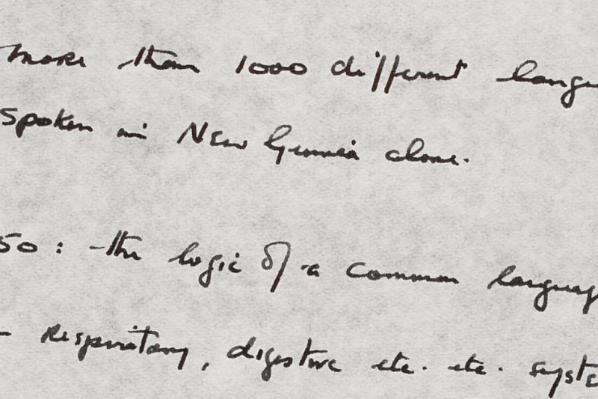 more than 1000 different langu
spoken in New Guinea alone.
50: the logic of a common languag
- respiratory, digestive etc. etc. syste